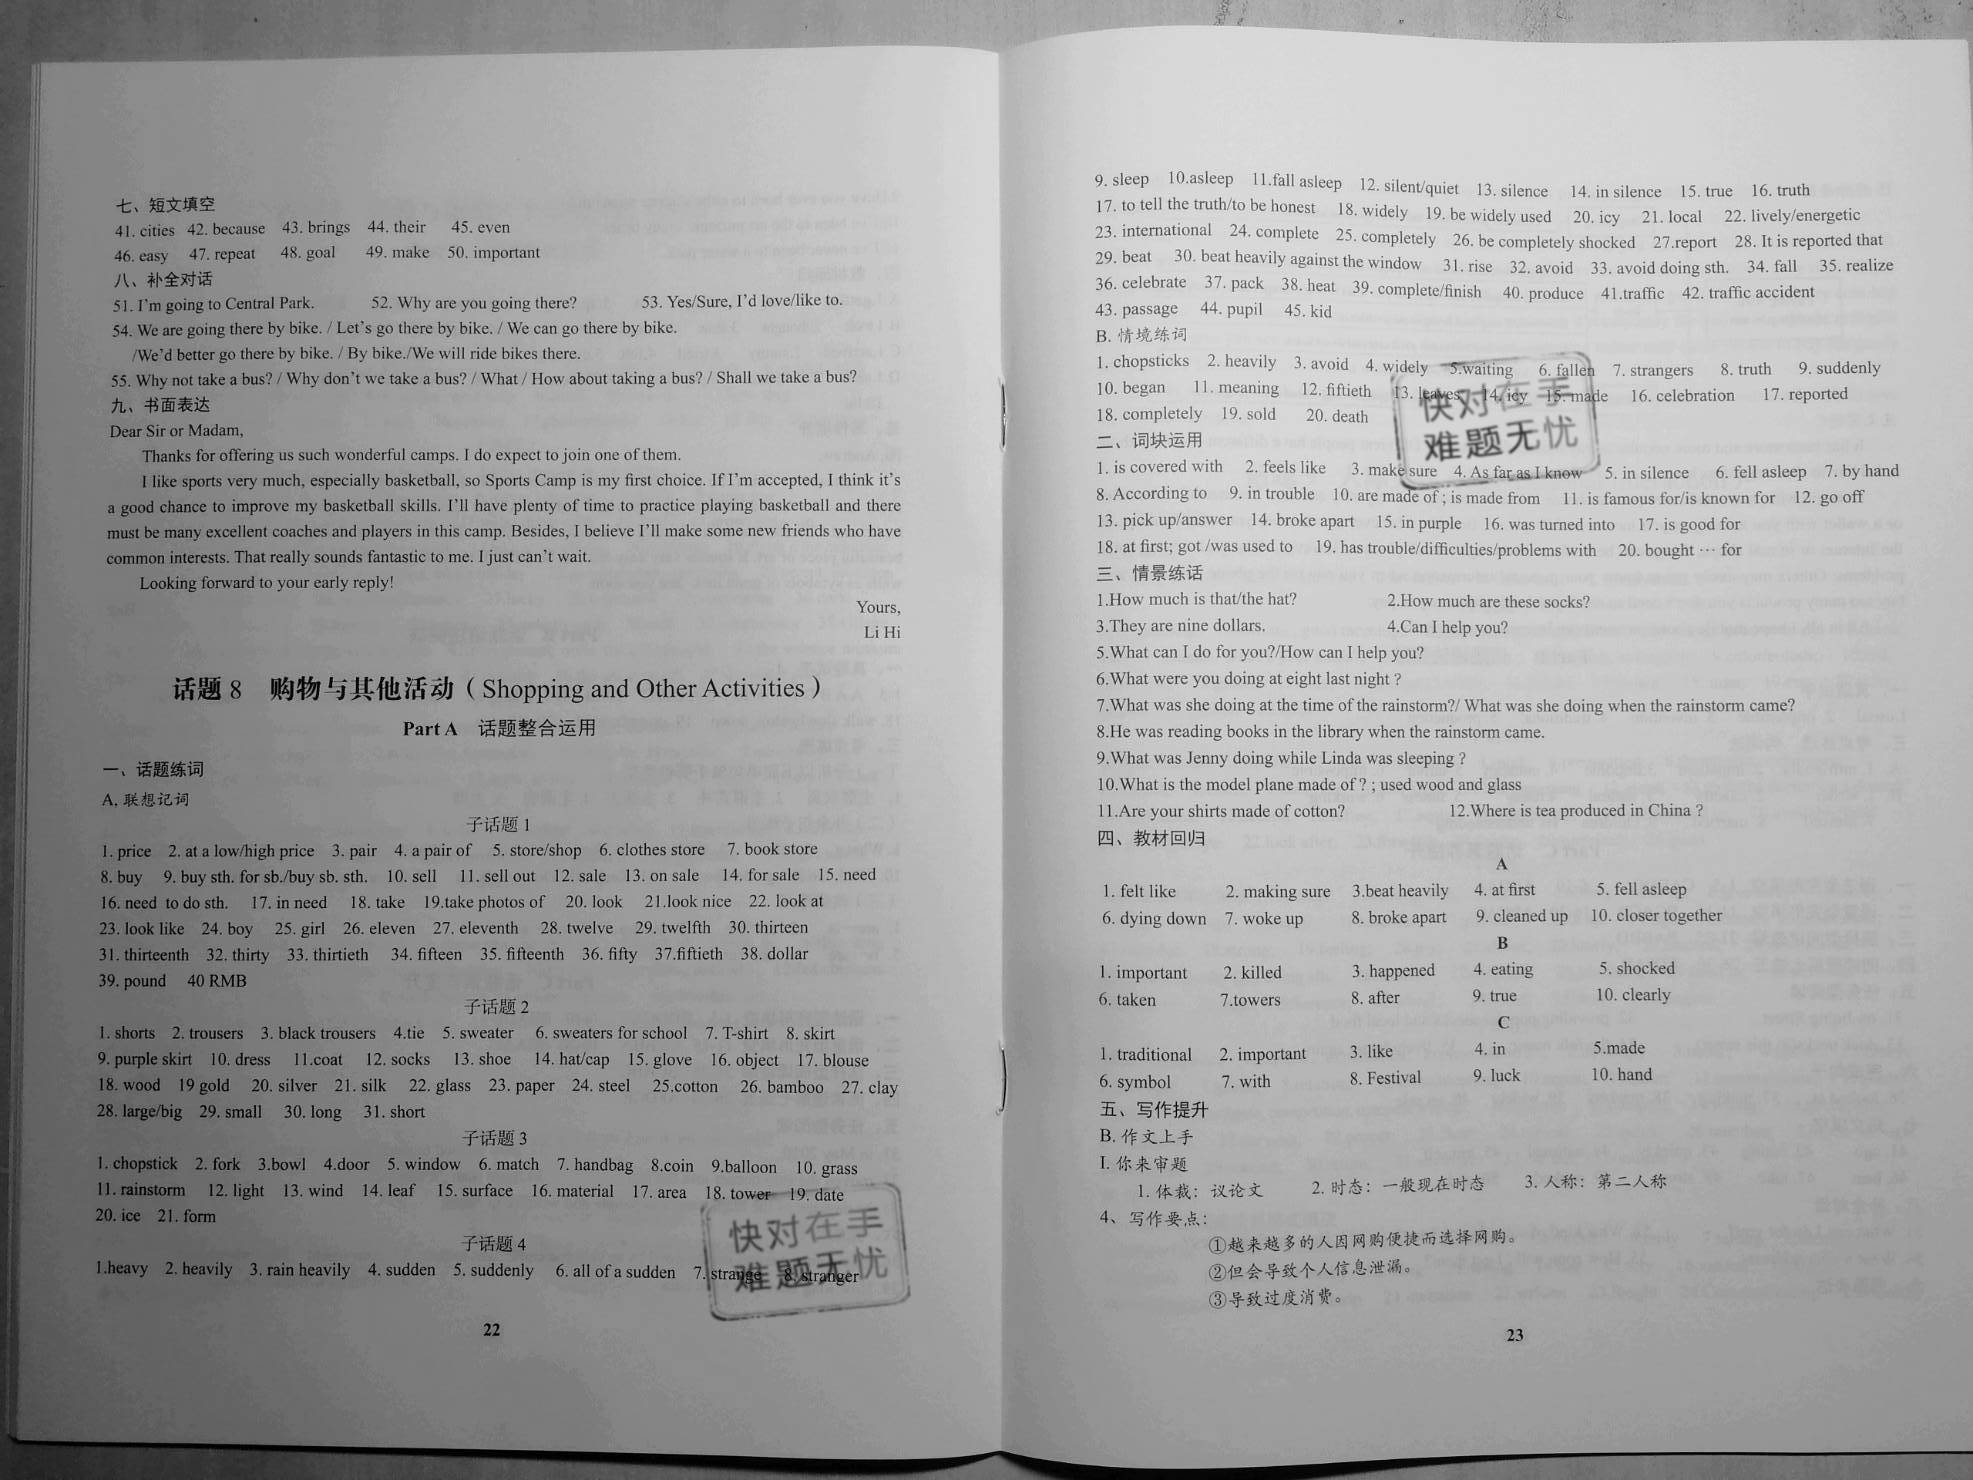 七、短文填空
41. cities 42. because 43. brings 44. their 45. even
46. easy 47. repeat 48. goal 49. make 50. important
八、补全对话
51. I'm going to Central Park. 52. Why are you going there? 53. Yes/Sure, I'd love/like to.
54. We are going there by bike. / Let's go there by bike. / We can go there by bike.
/We'd better go there by bike. / By bike./We will ride bikes there.
55. Why not take a bus? / Why don't we take a bus? / What / How about taking a bus? / Shall we take a bus?
九、书面表达
Dear Sir or Madam,
Thanks for offering us such wonderful camps. I do expect to join one of them.
I like sports very much, especially basketball, so Sports Camp is my first choice. If I'm accepted, I think it's
a good chance to improve my basketball skills. I'll have plenty of time to practice playing basketball and there
must be many excellent coaches and players in this camp. Besides, I believe I'll make some new friends who have
common interests. That really sounds fantastic to me. I just can't wait.
Looking forward to your early reply!
Yours,
Li Hi
话题 8 购物与其他活动（Shopping and Other Activities）
Part A 话题整合运用
一、话题练词
A. 联想记词
子话题 1
1. price 2. at a low/high price 3. pair 4. a pair of 5. store/shop 6. clothes store 7. book store
8. buy 9. buy sth. for sb./buy sb. sth. 10. sell 11. sell out 12. sale 13. on sale 14. for sale 15. need
16. need to do sth. 17. in need 18. take 19.take photos of 20. look 21.look nice 22. look at
23. look like 24. boy 25. girl 26. eleven 27. eleventh 28. twelve 29. twelfth 30. thirteen
31. thirteenth 32. thirty 33. thirtieth 34. fifteen 35. fifteenth 36. fifty 37.fiftieth 38. dollar
39. pound 40 RMB
子话题 2
1. shorts 2. trousers 3. black trousers 4.tie 5. sweater 6. sweaters for school 7. T-shirt 8. skirt
9. purple skirt 10. dress 11.coat 12. socks 13. shoe 14. hat/cap 15. glove 16. object 17. blouse
18. wood 19 gold 20. silver 21. silk 22. glass 23. paper 24. steel 25.cotton 26. bamboo 27. clay
28. large/big 29. small 30. long 31. short
子话题 3
1. chopstick 2. fork 3.bowl 4.door 5. window 6. match 7. handbag 8.coin 9.balloon 10. grass
11. rainstorm 12. light 13. wind 14. leaf 15. surface 16. material 17. area 18. tower 19. date
20. ice 21. form
子话题 4
1.heavy 2. heavily 3. rain heavily 4. sudden 5. suddenly 6. all of a sudden 7. strange 8. stranger
快对在手
难题无忧
22
9. sleep 10.asleep 11.fall asleep 12. silent/quiet 13. silence 14. in silence 15. true 16. truth
17. to tell the truth/to be honest 18. widely 19. be widely used 20. icy 21. local 22. lively/energetic
23. international 24. complete 25. completely 26. be completely shocked 27.report 28. It is reported that
29. beat 30. beat heavily against the window 31. rise 32. avoid 33. avoid doing sth. 34. fall 35. realize
36. celebrate 37. pack 38. heat 39. complete/finish 40. produce 41.traffic 42. traffic accident
43. passage 44. pupil 45. kid
B. 情境练词
1. chopsticks 2. heavily 3. avoid 4. widely 5.waiting 6. fallen 7. strangers 8. truth 9. suddenly
10. began 11. meaning 12. fiftieth 13. leaves 14. icy 15. made 16. celebration 17. reported
18. completely 19. sold 20. death
快对在手
难题无忧
二、词块运用
1. is covered with 2. feels like 3. make sure 4. As far as I know 5. in silence 6. fell asleep 7. by hand
8. According to 9. in trouble 10. are made of ; is made from 11. is famous for/is known for 12. go off
13. pick up/answer 14. broke apart 15. in purple 16. was turned into 17. is good for
18. at first; got /was used to 19. has trouble/difficulties/problems with 20. bought … for
三、情景练话
1.How much is that/the hat? 2.How much are these socks?
3.They are nine dollars. 4.Can I help you?
5.What can I do for you?/How can I help you?
6.What were you doing at eight last night ?
7.What was she doing at the time of the rainstorm?/ What was she doing when the rainstorm came?
8.He was reading books in the library when the rainstorm came.
9.What was Jenny doing while Linda was sleeping ?
10.What is the model plane made of ? ; used wood and glass
11.Are your shirts made of cotton? 12.Where is tea produced in China ?
四、教材回归
A
1. felt like 2. making sure 3.beat heavily 4. at first 5. fell asleep
6. dying down 7. woke up 8. broke apart 9. cleaned up 10. closer together
B
1. important 2. killed 3. happened 4. eating 5. shocked
6. taken 7.towers 8. after 9. true 10. clearly
C
1. traditional 2. important 3. like 4. in 5.made
6. symbol 7. with 8. Festival 9. luck 10. hand
五、写作提升
B. 作文上手
I. 你来审题
1. 体裁：议论文 2. 时态：一般现在时态 3. 人称：第二人称
4、写作要点：
①越来越多的人因网购便捷而选择网购。
②但会导致个人信息泄漏。
③导致过度消费。
23